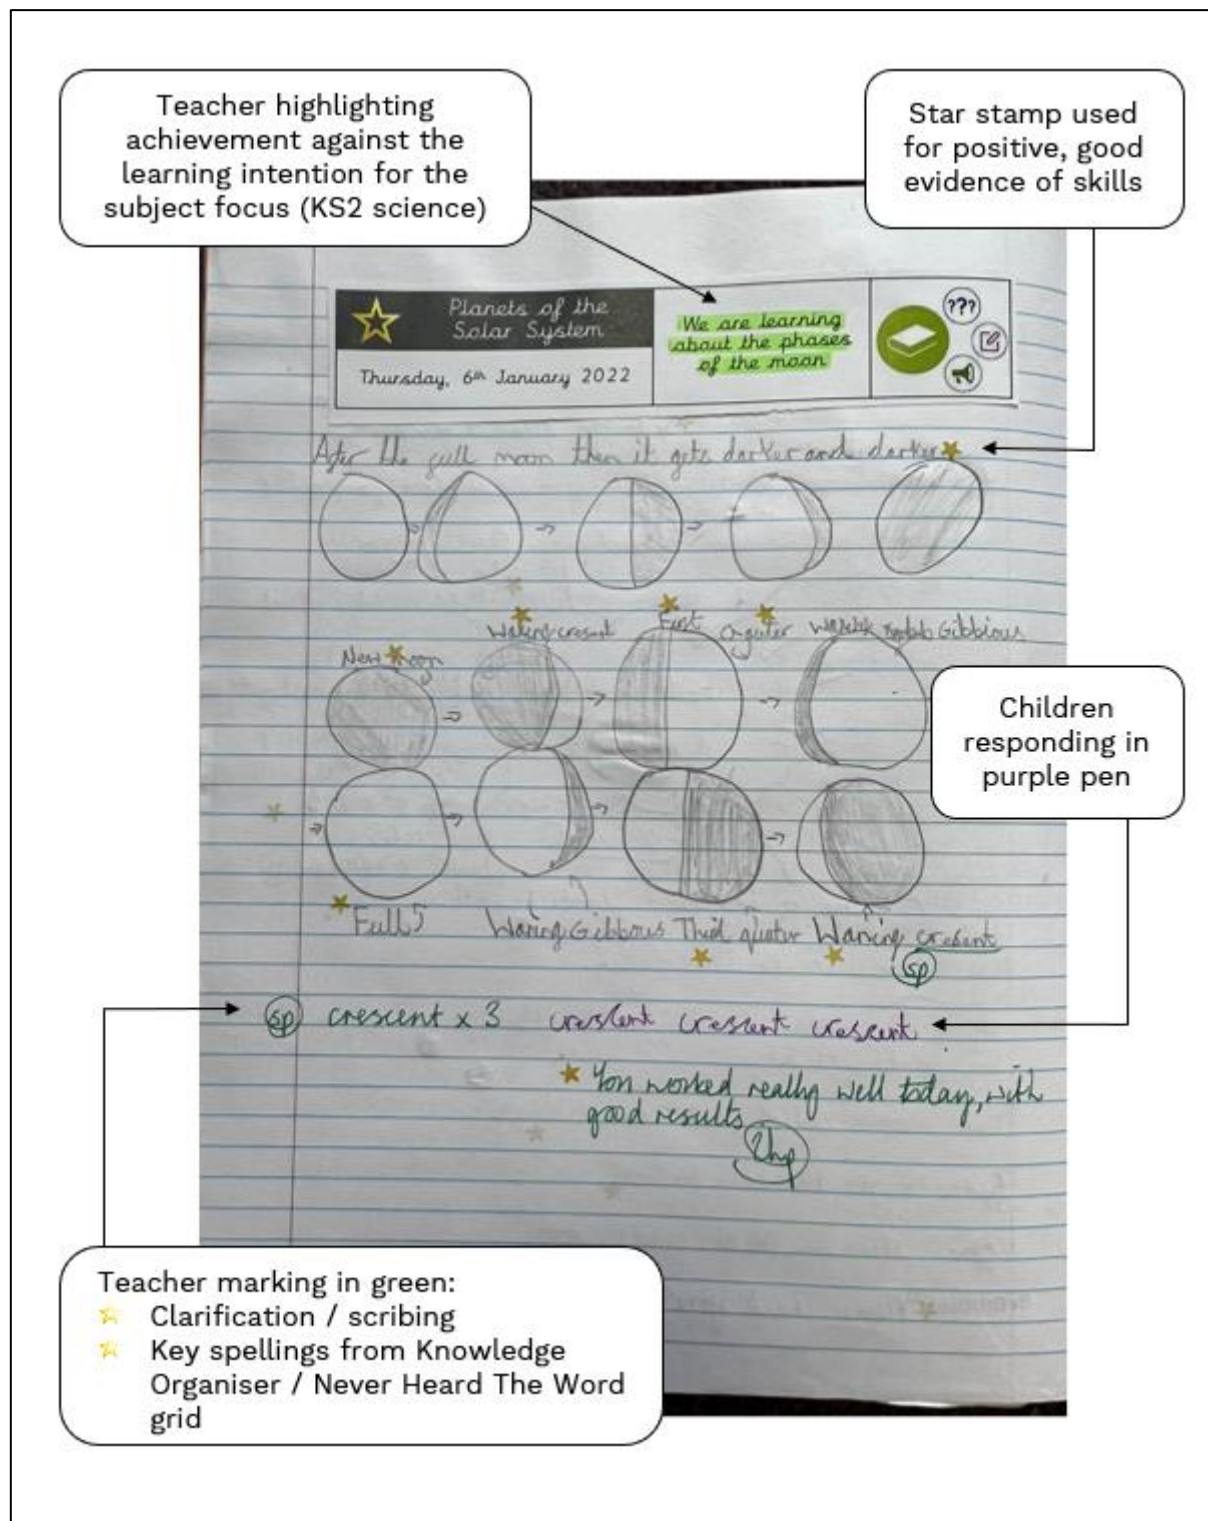 Teacher highlighting
achievement against the
learning intention for the
subject focus (KS2 science)
Star stamp used
for positive, good
evidence of skills
Planets of the
Solar System
Thursday, 6th January 2022
We are learning
about the phases
of the moon
???
After the full moon then it gets darker and darker
New Moon
Waxing cresent
First
Gibbious
Children
responding in
purple pen
Full
Waning Gibbous Third Waning cresent
sp
sp crescent x 3 crescent crescent crescent
You worked really well today, with
good results
2hp
Teacher marking in green:
Clarification / scribing
Key spellings from Knowledge
Organiser / Never Heard The Word
grid